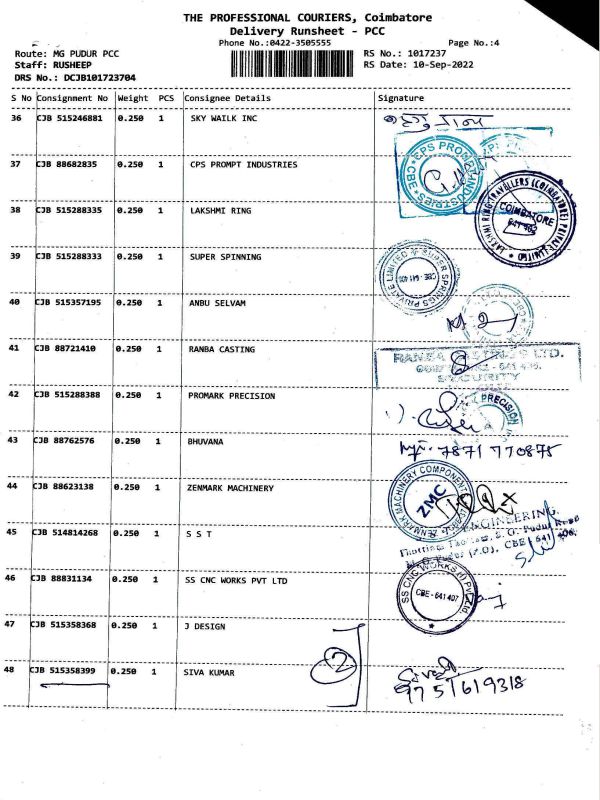 THE PROFESSIONAL COURIERS, Coimbatore
Delivery Runsheet - PCC
Phone No.:0422-3505555
Page No.:4
Route: MG PUDUR PCC
RS No.: 1017237
Staff: RUSHEEP
RS Date: 10-Sep-2022
DRS No.: DCJB101723704
S No Consignment No Weight PCS Consignee Details Signature
36 CJB 515246881 0.250 1 SKY WAILK INC
37 CJB 88682835 0.250 1 CPS PROMPT INDUSTRIES
CPS PROMPT INDUSTRIES CBE
38 CJB 515288335 0.250 1 LAKSHMI RING
LAKSHMI RING TRAVELLERS (COIMBATORE) PRIVATE LIMITED
COIMBATORE
641 402
39 CJB 515288333 0.250 1 SUPER SPINNING
SUPER SPRINGS PRIVATE LIMITED
40 CJB 515357195 0.250 1 ANBU SELVAM
41 CJB 88721410 0.250 1 RANBA CASTING
SECURITY
42 CJB 515288388 0.250 1 PROMARK PRECISION
PRECISION
43 CJB 88762576 0.250 1 BHUVANA
7871 770875
44 CJB 88623138 0.250 1 ZENMARK MACHINERY
ZENMARK MACHINERY COMPONENTS
ZMC
45 CJB 514814268 0.250 1 S S T
ENGINEERING
Thottam, S. G. Pudur Road
CBE - 641 406.
46 CJB 88831134 0.250 1 SS CNC WORKS PVT LTD
SS CNC WORKS
CBE - 641 407
47 CJB 515358368 0.250 1 J DESIGN
2
48 CJB 515358399 0.250 1 SIVA KUMAR
9751619318